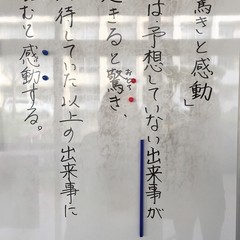 驚きと感動」
は・予想していない出来事が
起きると驚き、
待していた以上の出来事に
むと感動する。